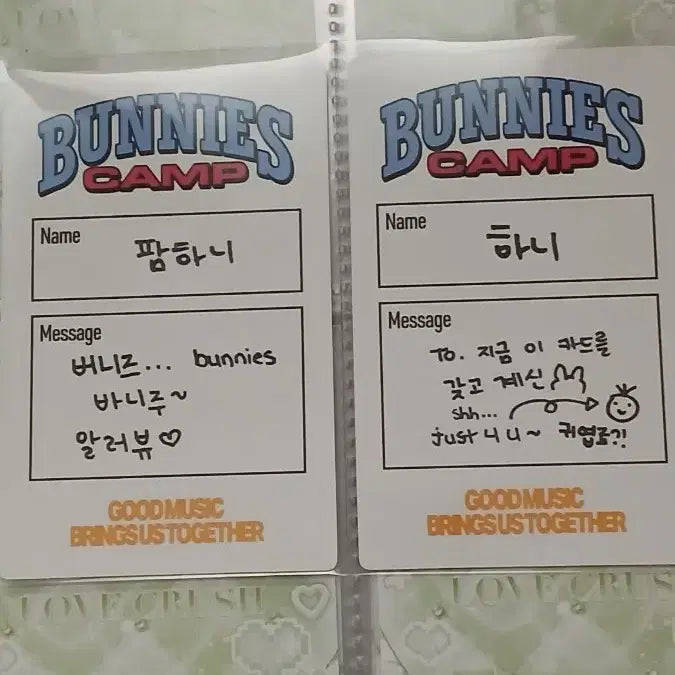 BUNNIES
CAMP
Name
팜하니
Message
버니즈... bunnies
바니주~
알러뷰♡
GOOD MUSIC
BRINGS US TOGETHER
BUNNIES
CAMP
Name
하니
Message
To. 지금 이 카드를
갖고 계신
shh...
just 4 U~ 귀엽죠?!
GOOD MUSIC
BRINGS US TOGETHER
LOVE CRUSH
LOVE CRUSH